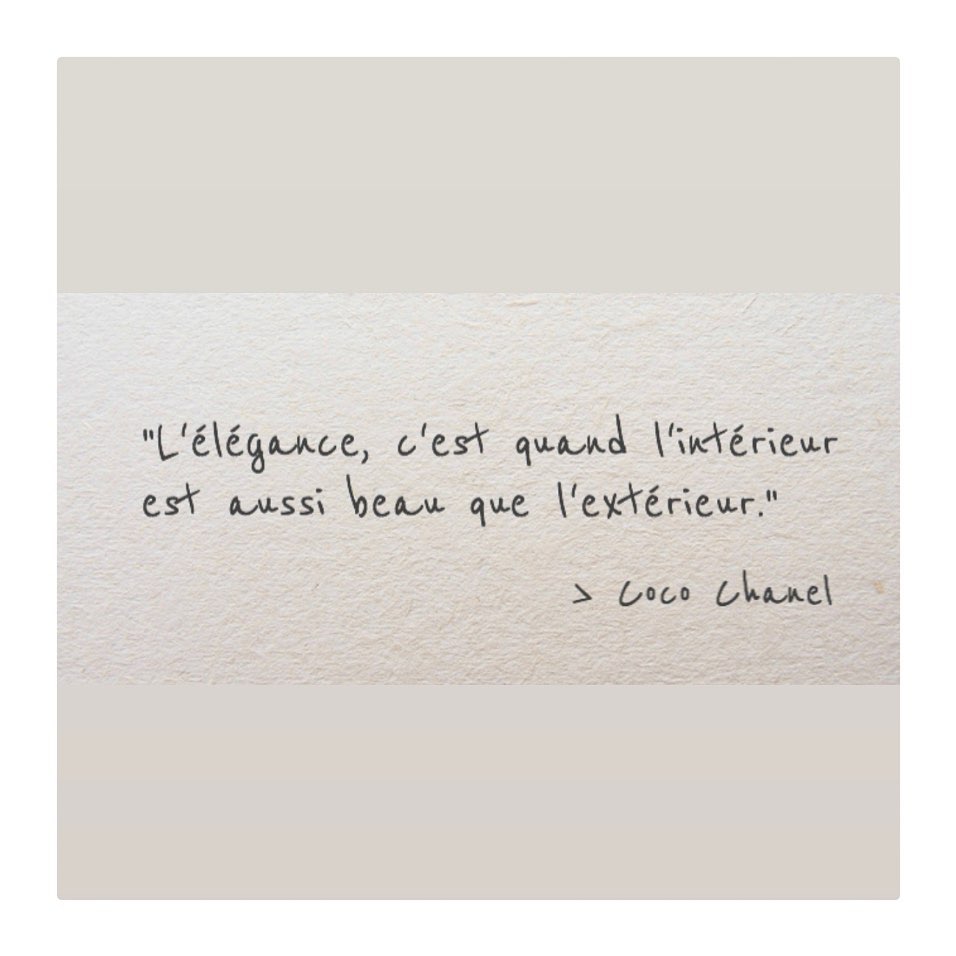 "L'élégance, c'est quand l'intérieur
est aussi beau que l'extérieur."
> Coco Chanel